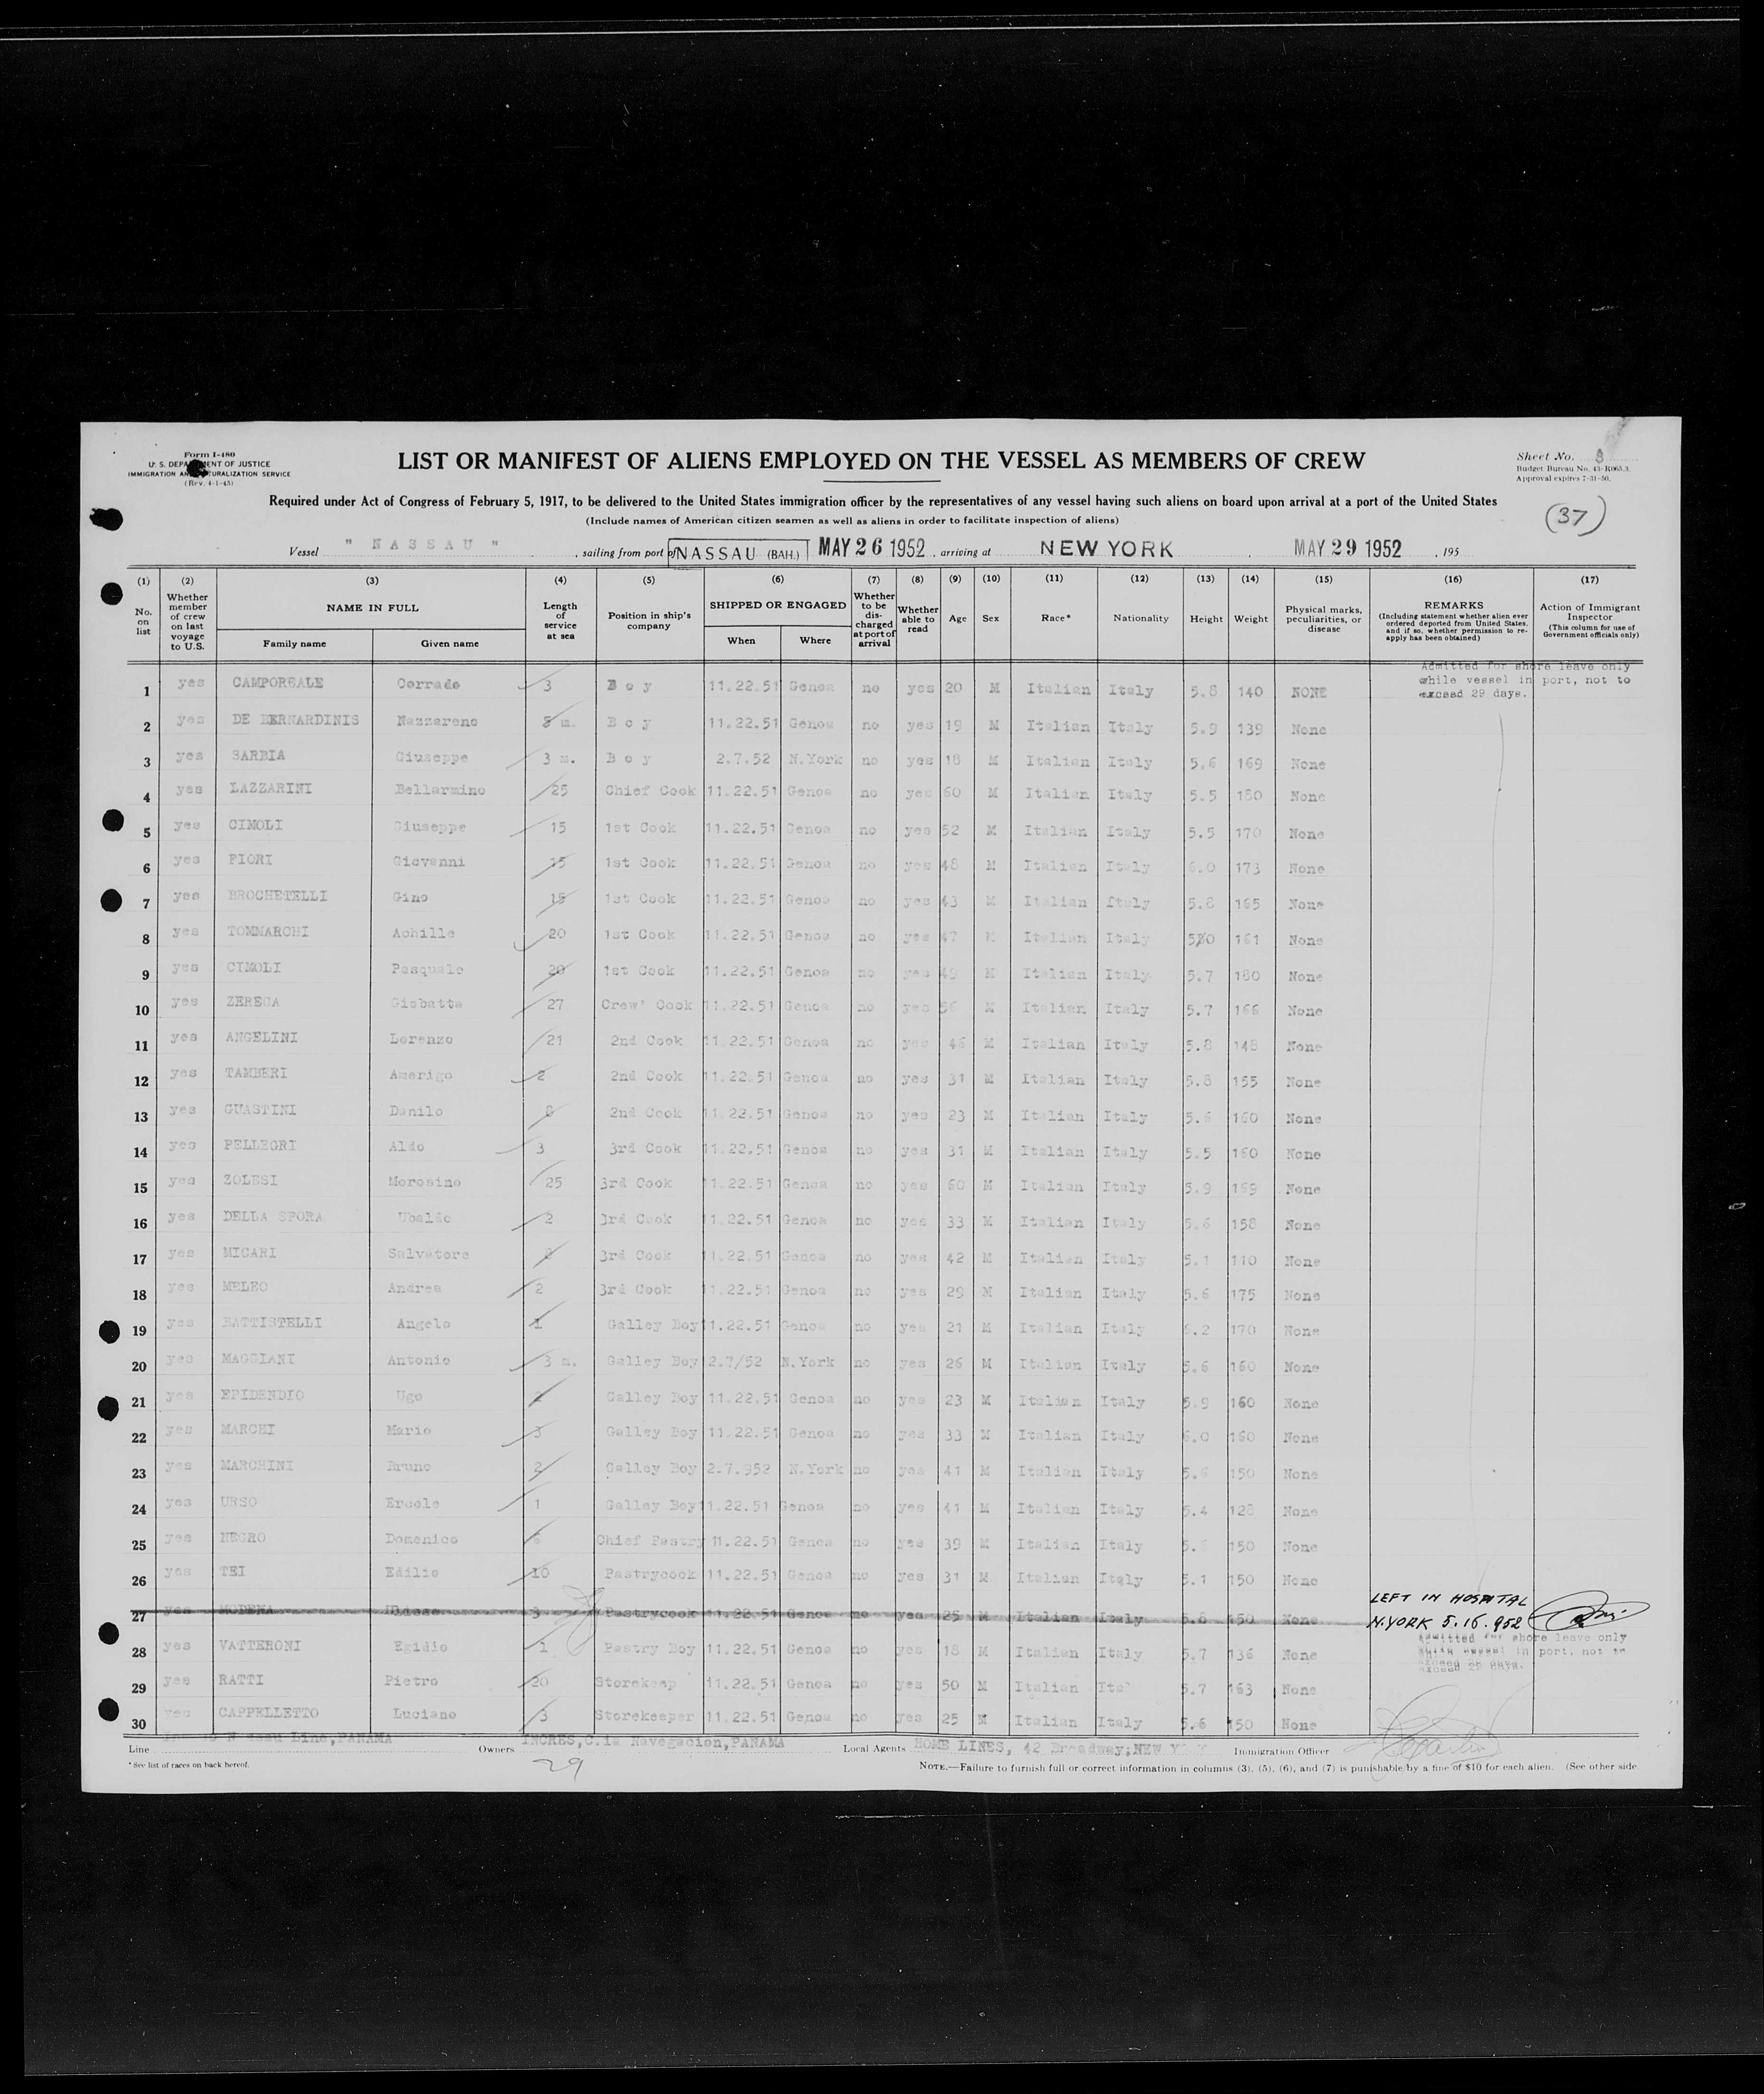 Form I-480
U. S. DEPARTMENT OF JUSTICE
IMMIGRATION AND NATURALIZATION SERVICE
(Rev. 4-1-45)
LIST OR MANIFEST OF ALIENS EMPLOYED ON THE VESSEL AS MEMBERS OF CREW
Sheet No. 3
Budget Bureau No. 43-R065.3.
Approval expires 7-31-50.
Required under Act of Congress of February 5, 1917, to be delivered to the United States immigration officer by the representatives of any vessel having such aliens on board upon arrival at a port of the United States
(Include names of American citizen seamen as well as aliens in order to facilitate inspection of aliens)
(37)
Vessel " NASSAU " , sailing from port of NASSAU (BAH.) MAY 26 1952 , arriving at NEW YORK , MAY 29 1952 , 195
(1) No. on list
(2) Whether member of crew on last voyage to U.S.
(3) NAME IN FULL Family name Given name
(4) Length of service at sea
(5) Position in ship's company
(6) SHIPPED OR ENGAGED When Where
(7) Whether to be discharged at port of arrival
(8) Whether able to read
(9) Age
(10) Sex
(11) Race*
(12) Nationality
(13) Height
(14) Weight
(15) Physical marks, peculiarities, or disease
(16) REMARKS (Including statement whether alien ever ordered deported from United States, and if so, whether permission to reapply has been obtained)
(17) Action of Immigrant Inspector (This column for use of Government officials only)
Admitted for shore leave only
while vessel in port, not to
exceed 29 days.
1 yes CAMPOREALE Corrado 3 Boy 11.22.51 Genoa no yes 20 M Italian Italy 5.8 140 NONE
2 yes DE BERNARDINIS Nazzareno 5 m. Boy 11.22.51 Genoa no yes 19 M Italian Italy 5.9 139 None
3 yes SARBIA Giuseppe 3 m. Boy 2.7.52 N.York no yes 18 M Italian Italy 5.6 169 None
4 yes LAZZARINI Bellarmino 25 Chief Cook 11.22.51 Genoa no yes 60 M Italian Italy 5.5 180 None
5 yes CIMOLI Giuseppe 15 1st Cook 11.22.51 Genoa no yes 52 M Italian Italy 5.5 170 None
6 yes FIORI Giovanni 15 1st Cook 11.22.51 Genoa no yes 48 M Italian Italy 6.0 173 None
7 yes BROCHETELLI Gino 15 1st Cook 11.22.51 Genoa no yes 43 M Italian Italy 5.8 165 None
8 yes TOMMARCHI Achille 20 1st Cook 11.22.51 Genoa no yes 47 M Italian Italy 161 None
9 yes CIMOLI Pasquale 20 1st Cook 11.22.51 Genoa no yes 49 M Italian Italy 5.7 180 None
10 yes ZEREGA Giobatta 27 Crew' Cook 11.22.51 Genoa no yes 56 M Italian Italy 5.7 166 None
11 yes ANGELINI Lorenzo 21 2nd Cook 11.22.51 Genoa no yes 46 M Italian Italy 5.8 148 None
12 yes TAMBERI Amerigo 2 2nd Cook 11.22.51 Genoa no yes 31 M Italian Italy 5.8 155 None
13 yes GUASTINI Danilo 8 2nd Cook 11.22.51 Genoa no yes 23 M Italian Italy 5.6 160 None
14 yes PELLEGRI Aldo 3 3rd Cook 11.22.51 Genoa no yes 31 M Italian Italy 5.5 160 None
15 yes ZOLESI Morosino 25 3rd Cook 11.22.51 Genoa no yes 60 M Italian Italy 5.9 169 None
16 yes DELLA SPORA Ubaldo 2 3rd Cook 11.22.51 Genoa no yes 33 M Italian Italy 5.6 158 None
17 yes MICARI Salvatore 2 3rd Cook 11.22.51 Genoa no yes 42 M Italian Italy 5.1 110 None
18 yes MELEO Andrea 2 3rd Cook 11.22.51 Genoa no yes 29 M Italian Italy 5.6 175 None
19 yes BATTISTELLI Angelo 1 Galley Boy 11.22.51 Genoa no yes 21 M Italian Italy 6.2 170 None
20 yes MAGGIANI Antonio 3 m. Galley Boy 2.7/52 N.York no yes 26 M Italian Italy 5.6 160 None
21 yes EPIDENDIO Ugo 2 Galley Boy 11.22.51 Genoa no yes 23 M Italian Italy 5.9 160 None
22 yes MARCHI Mario 3 Galley Boy 11.22.51 Genoa no yes 33 M Italian Italy 6.0 160 None
23 yes MARCHINI Bruno 2 Galley Boy 2.7.952 N.York no yes 41 M Italian Italy 5.6 150 None
24 yes URSO Ercole 1 Galley Boy 11.22.51 Genoa no yes 41 M Italian Italy 5.4 128 None
25 yes NEGRO Domenico 6 Chief Pastry 11.22.51 Genoa no yes 39 M Italian Italy 150 None
26 yes TEI Edilio 10 Pastrycook 11.22.51 Genoa no yes 31 M Italian Italy 5.1 150 None
27 yes MODENA 3 Pastrycook 11.22.51 Genoa no yes 25 M Italian Italy 5.8 150 None LEFT IN HOSPITAL
N.YORK 5.16.952
28 yes VATTERONI Egidio 1 Pastry Boy 11.22.51 Genoa no yes 18 M Italian Italy 5.7 136 None
Admitted for shore leave only
while vessel in port, not to
exceed 29 days.
29 yes RATTI Pietro 20 Storekeep 11.22.51 Genoa no yes 50 M Italian 5.7 163 None
30 yes CAPPELLETTO Luciano 3 Storekeeper 11.22.51 Genoa no yes 25 M Italian Italy 5.6 150 None
Line Line,PANAMA Owners INCRES,C.ia Navegacion,PANAMA Local Agents HOME LINES, 42 Broadway;NEW Immigration Officer
29
* See list of races on back hereof.
NOTE.—Failure to furnish full or correct information in columns (3), (5), (6), and (7) is punishable by a fine of $10 for each alien. (See other side